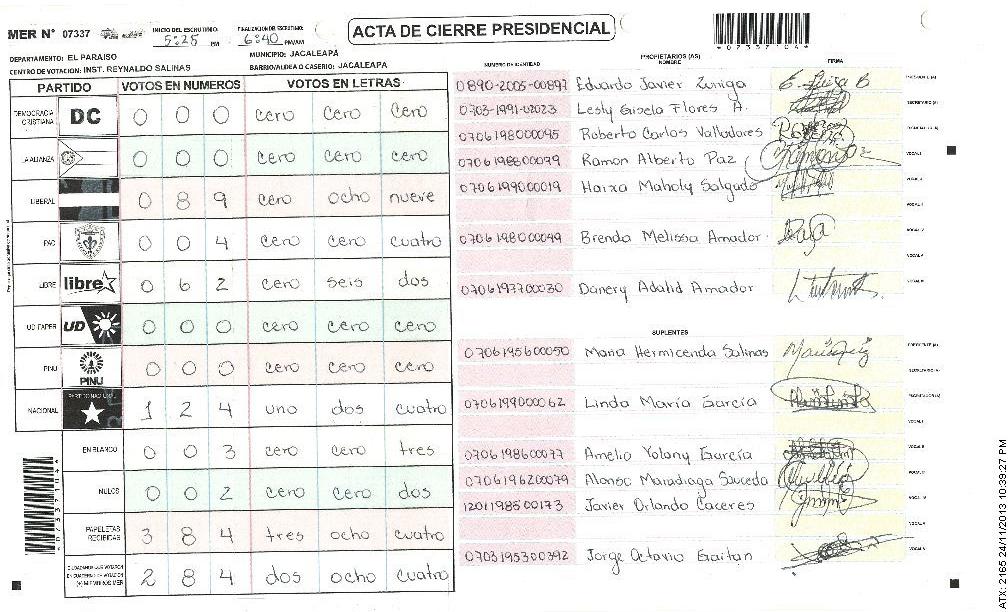 MER N° 07337
INICIO DEL ESCRUTINIO: 5:25 PM
FINALIZACION DE ESCRUTINIO: 6:40 PM/AM
ACTA DE CIERRE PRESIDENCIAL
*07337 04*
DEPARTAMENTO: EL PARAISO
MUNICIPIO: JACALEAPA
CENTRO DE VOTACION: INST. REYNALDO SALINAS
BARRIO/ALDEA O CASERIO: JACALEAPA
PARTIDO VOTOS EN NUMEROS VOTOS EN LETRAS
DEMOCRACIA CRISTIANA DC 0 0 0 cero cero cero
LA ALIANZA 0 0 0 cero cero cero
LIBERAL 0 8 9 cero ocho nueve
PAC 0 0 4 cero cero cuatro
LIBRE libre 0 6 2 cero seis dos
UD FAPER UD 0 0 0 cero cero cero
PINU PINU 0 0 0 cero cero cero
NACIONAL PARTIDO NACIONAL 1 2 4 uno dos cuatro
EN BLANCO 0 0 3 cero cero tres
NULOS 0 0 2 cero cero dos
PAPELETAS RECIBIDAS 3 8 4 tres ocho cuatro
2 8 4 dos ocho cuatro
NUMERO DE IDENTIDAD
PROPIETARIOS (AS)
NOMBRE
FIRMA
0890-2005-00897 Eduardo Javier Zuniga PRESIDENTE (A)
0703-1991-02023 Lesly Gisela Flores A. SECRETARIO (A)
0706198000095 Roberto Carlos Valladares ESCRUTADOR (A)
0706198800079 Ramon Alberto Paz VOCAL I
0706199000019 Haixa Maholy Salgado
0706198000049 Brenda Melissa Amador
0706197700030 Danery Adalid Amador
SUPLENTES
0706195600050 Maria Hermicenda Salinas PRESIDENTE (A)
SECRETARIO (A)
0706199000062 Linda María García ESCRUTADOR (A)
0706198600077 Amelio Yolany García
0706196200079 Alonso Maradiaga Sauceda
1201198500173 Javier Orlando Caceres
0703195300392 Jorge Octavio Gaitan
ATX: 2165 24/11/2013 10:39:27 PM